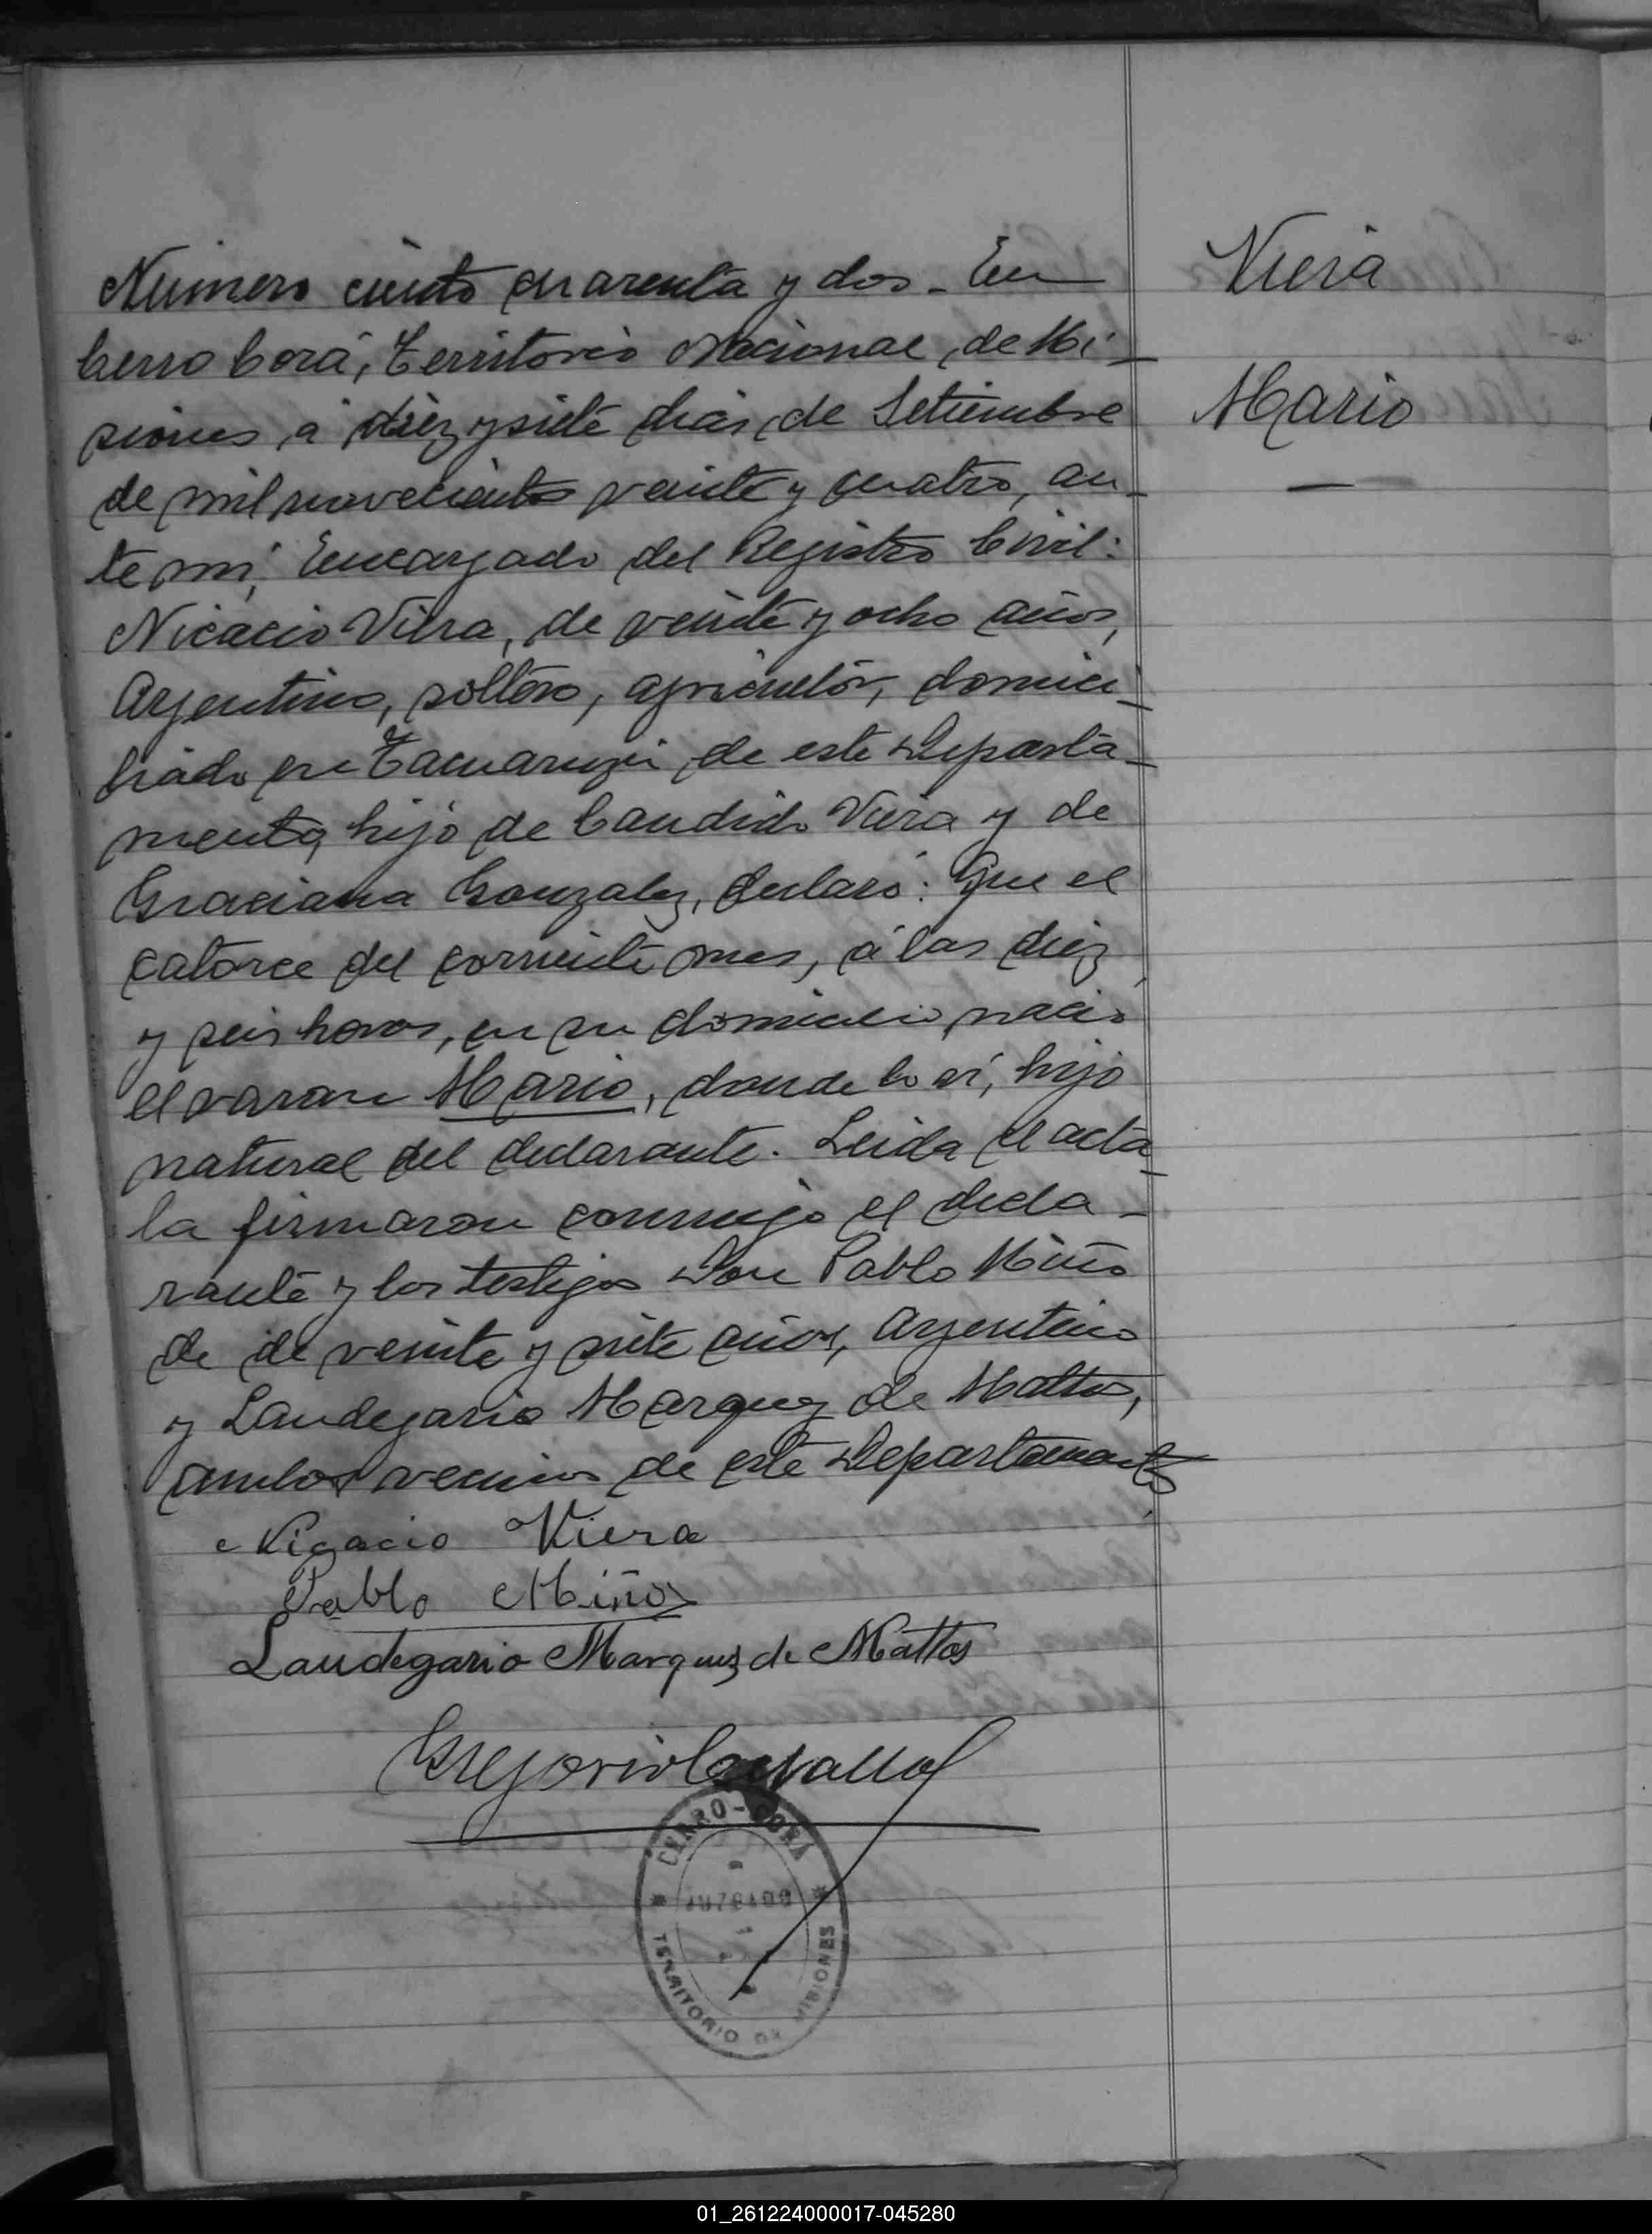 Número ciento cuarenta y dos - En
Cerro Corá, Territorio Nacional de Mi-
siones á diez y siete dias de Setiembre
de mil novecientos veinte y cuatro, an-
te mi, Encargado del Registro Civil:
Nicacio Viera, de veinte y ocho años,
Argentino, soltero, agricultor, domici-
liado en de este Departa-
mento, hijo de Candido Viera y de
Graciana Gonzalez, declaró: Que el
catorce del corriente mes, á las diez
y seis horas, en su domicilio nació
el varon Mario, donde lo ví, hijo
natural del declarante. Leida el acta
la firmaron conmigo el decla-
rante y los testigos Don Pablo Miño
de de veinte y siete años, Argentino
y Laudegario Marquez de Mattos,
ambos vecinos de este Departamento
Nigacio Viera
Pablo Miño
Laudegario Marquez de Mattos
Gregorio
CERRO-CORÁ
JUZGADO
TERRITORIO DE MISIONES
Viera
Mario
01_261224000017-045280